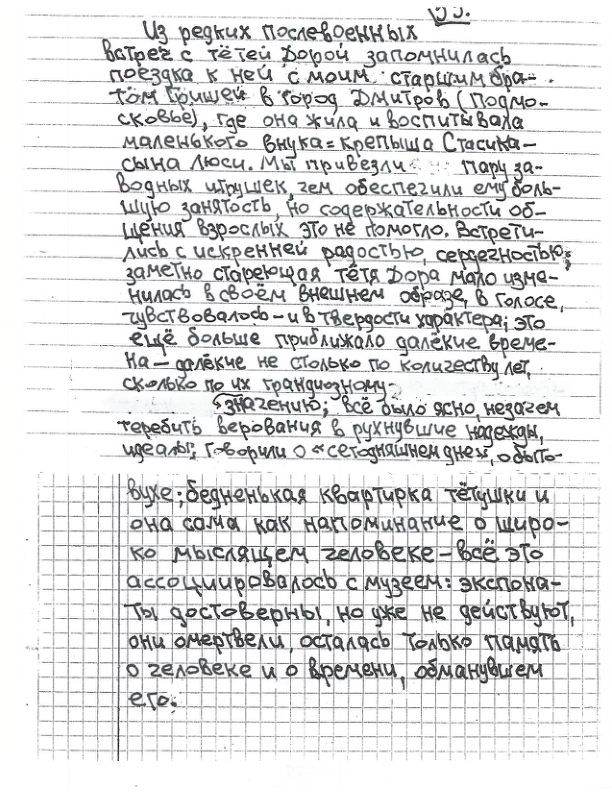 55.
Из редких послевоенных
встреч с тётей Дорой запомнилась
поездка к ней с моим старшим бра-
том Гришей в город Дмитров (Подмо-
сковье), где она жила и воспитывала
маленького внука-крепыша Стасика-
сына Люси. Мы привезли пару за-
водных игрушек, чем обеспечили ему боль-
шую занятость, но содержательности об-
щения взрослых это не помогло. Встрети-
лись с искренней радостью, сердечностью;
заметно стареющая тётя Дора мало изме-
нилась в своём внешнем образе, в голосе,
чувствовалось - и в твердости характера; это
ещё больше приближало далёкие време-
на - далёкие не столько по количеству лет,
сколько по их грандиозному
значению; всё было ясно, незачем
теребить верования в рухнувшие надежды,
идеалы; говорили о «сегодняшнем дне», о быто-
вухе; бедненькая квартирка тётушки и
она сама как напоминание о широ-
ко мыслящем человеке - всё это
ассоциировалось с музеем: экспона-
ты достоверны, но уже не действуют,
они омертвели, осталась только память
о человеке и о времени, обманувшем
его.